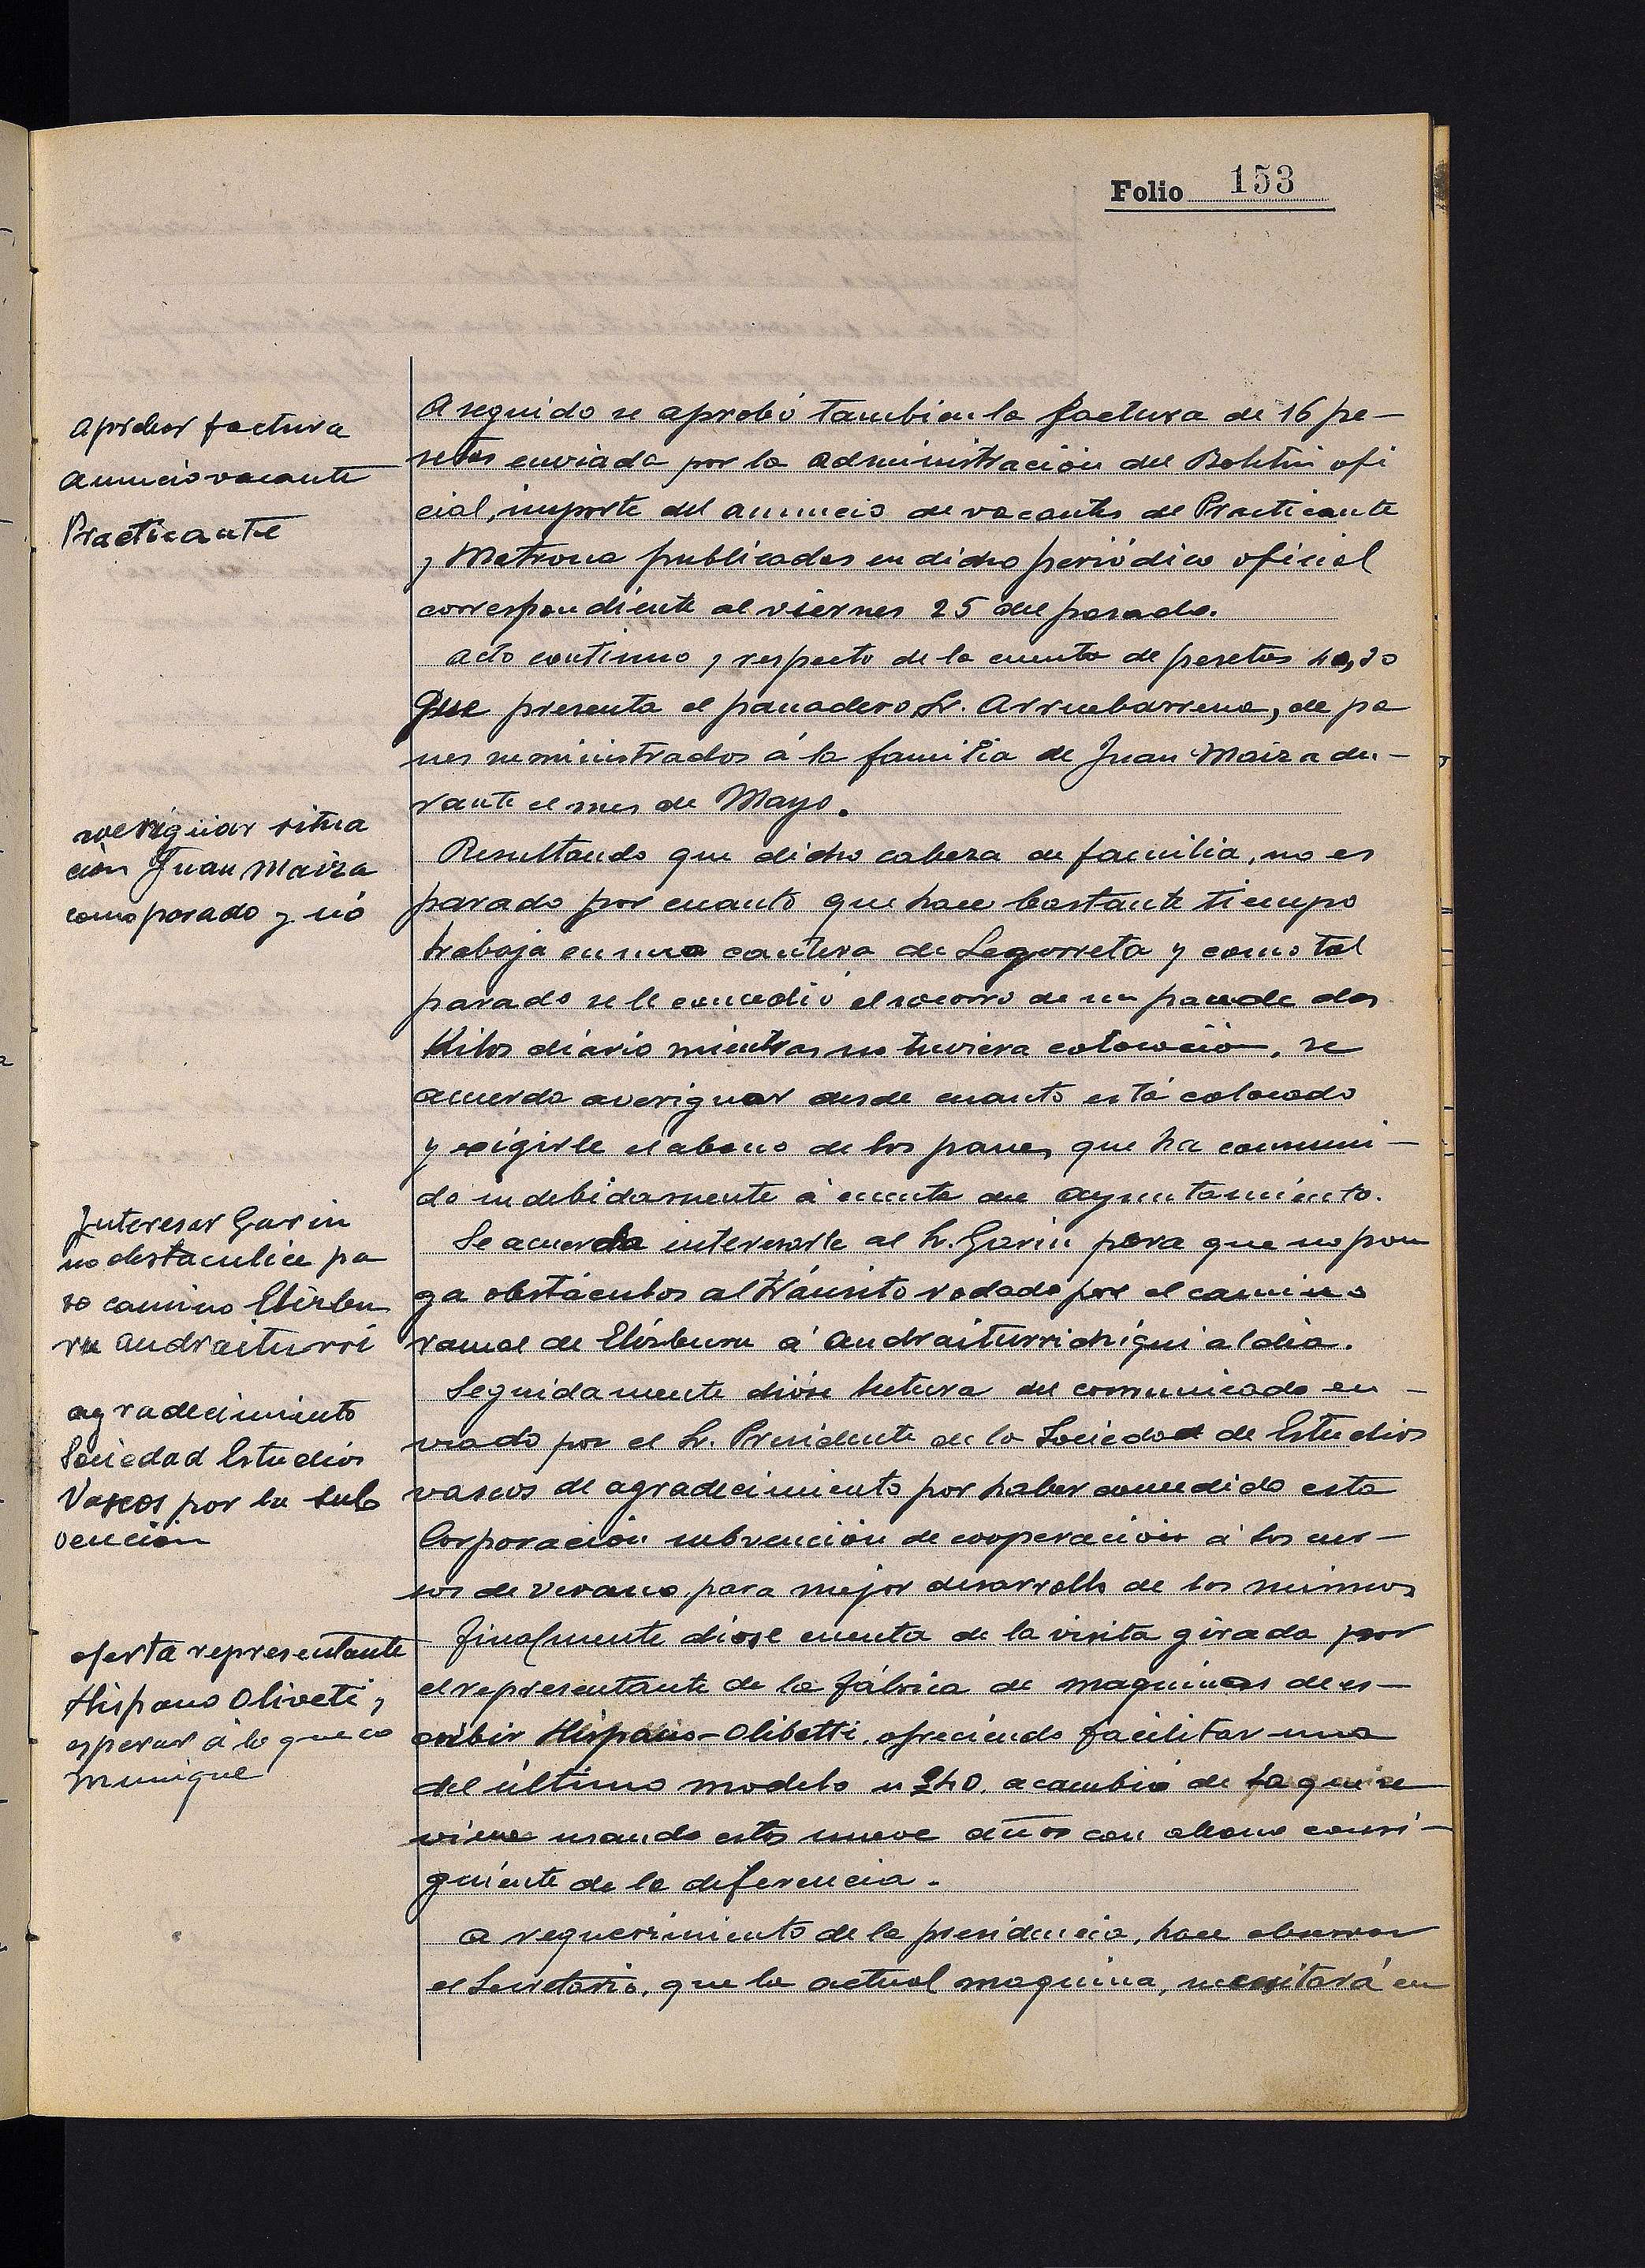 Folio 153
Aprobar factura
anuncio vacante
Practicante
A seguido se aprobó tambien la factura de 16 pe-
setas enviada por la administración del Boletin ofi
cial, importe del anuncio de vacantes de Practicante
y Matrona publicados en dicho periódico oficial
correspondiente al viernes 25 del pasado.
Acto continuo y respecto de la cuenta de pesetas
que presenta el panadero Sr. Arruebarrena, de pa
nes suministrados á la familia de Juan Maiza du-
rante el mes de Mayo.
averigüar situa
ción Juan Maiza
como parado y nó
Resultando que dicho cabeza de familia, no es
parado por cuanto que hace bastante tiempo
trabaja en una cantera de Legorreta y como tal
parado se le concedió el socorro de un pan de dos
Kilos diario mientras no tuviera colocación, se
acuerda averiguar desde cuanto está colocado
y exigirle el abono de los panes que ha consumi-
do indebidamente á cuenta del Ayuntamiento.
Interesar Garin
no obstaculice pa
so camino Elizbu
ru Andraiturri
Se acuerda interesarle al Sr. Garin para que no pon
ga obstáculos al tránsito rodado por el camino
ramal de Elizburu á Andraiturrichiqui aldia.
agradecimiento
Sociedad Estudios
Vascos por la sub
vención
Seguidamente dióse lectura del comunicado en-
viado por el Sr. Presidente de la Sociedad de Estudios
vascos de agradecimiento por haber concedido esta
Corporación subvención de cooperación á los cur-
sos de verano para mejor desarrollo de los mismos
oferta representante
Hispano Oliveti y
esperar á lo que co
munique
Finalmente dióse cuenta de la visita girada por
el representante de la fábrica de maquinas de es-
cribir Hispano-Olibetti, ofreciendo facilitar una
del último modelo n 240. a cambio de la que se
viene usando estos nueve años con abono consi-
guiente de la diferencia.
A requerimiento de la presidencia, hace observar
el Secretario, que la actual maquina, necesitará en